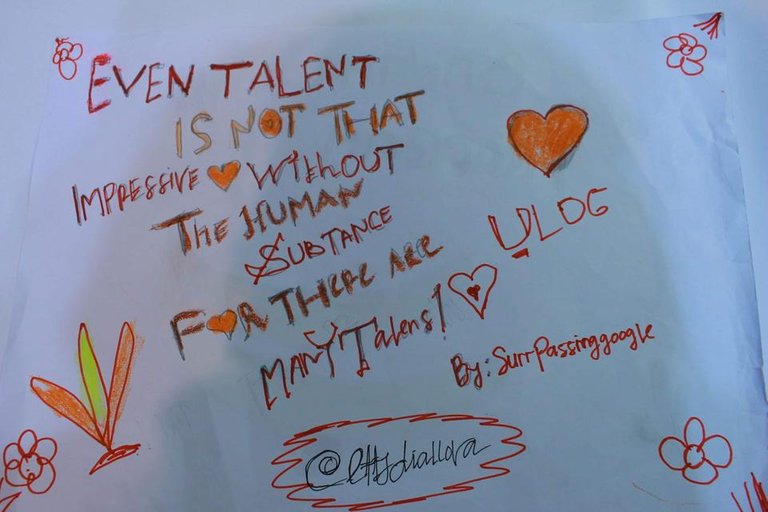 EVEN TALENT
IS NOT THAT
IMPRESSIVE WITHOUT
THE HUMAN
SUBTANCE
FOR THERE ARE
MANY Talens!
ULOG
By: SurrPassinggoogle